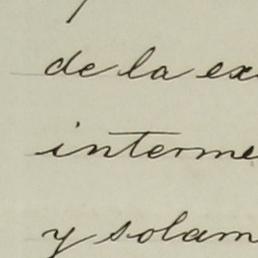 de la ex
interme
y solam